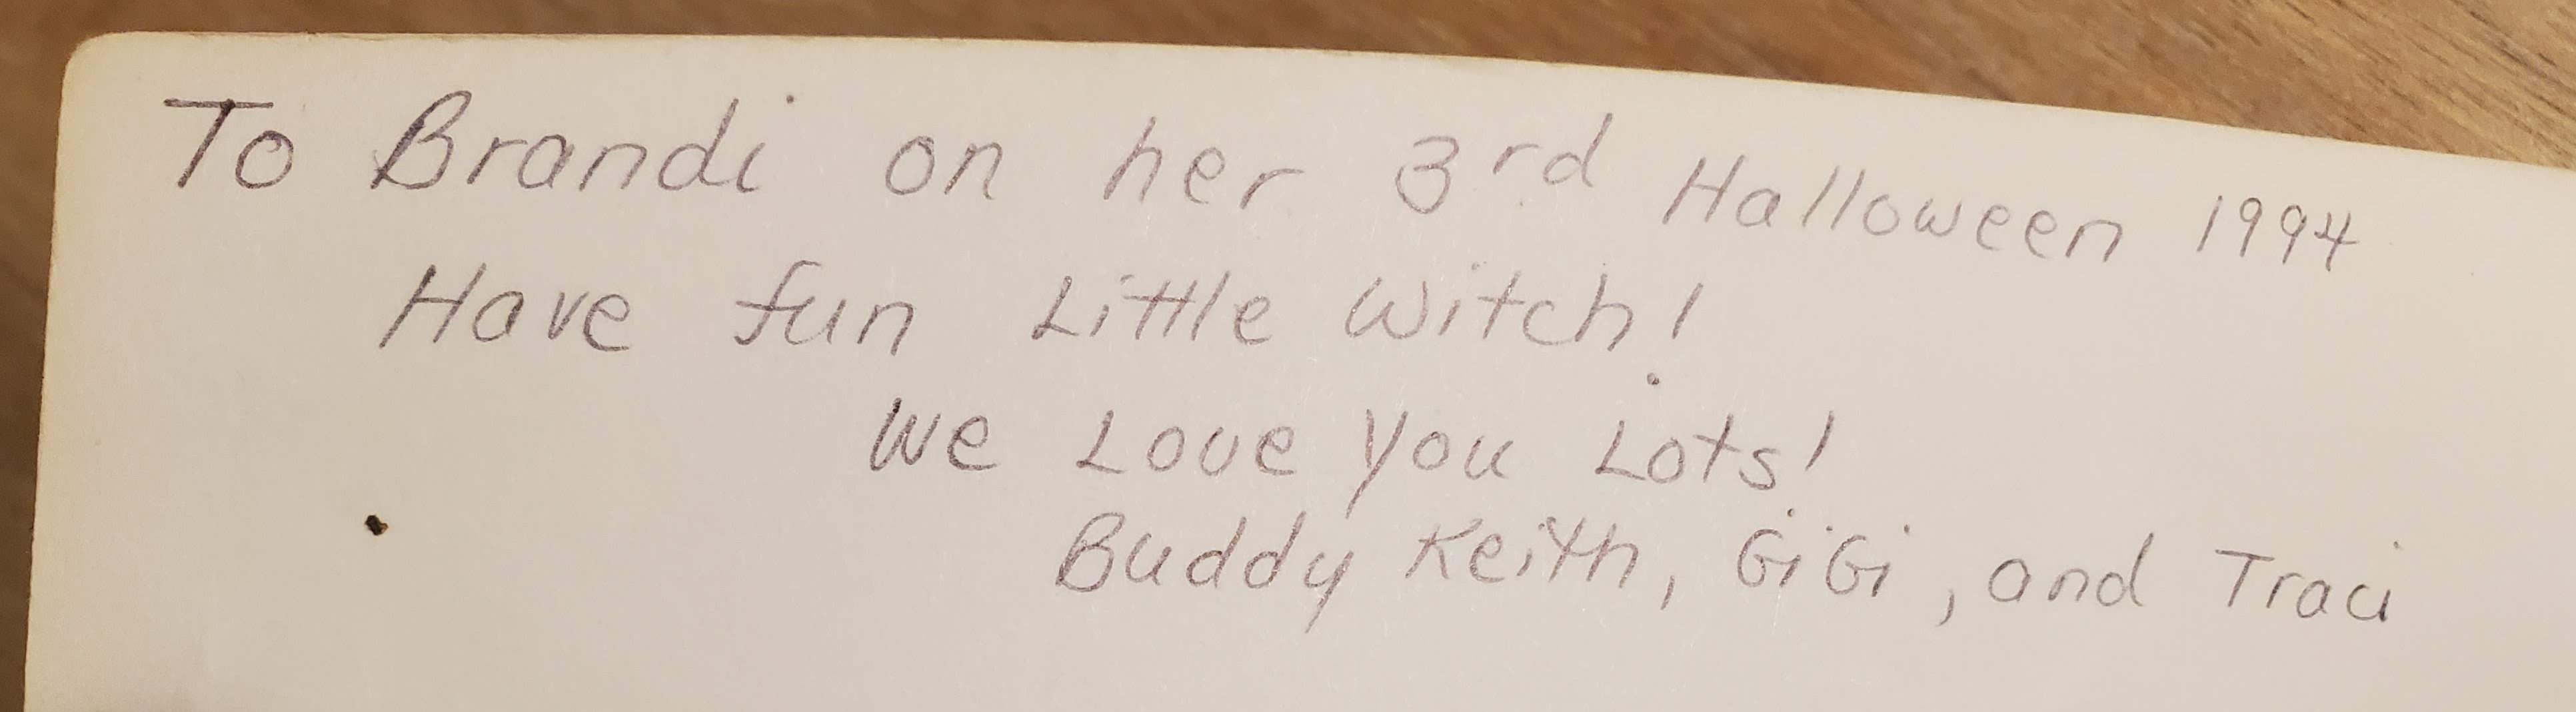 To Brandi on her 3rd Halloween 1994
Have fun Little Witch!
We Love you Lots!
Buddy Keith, GiGi, and Traci